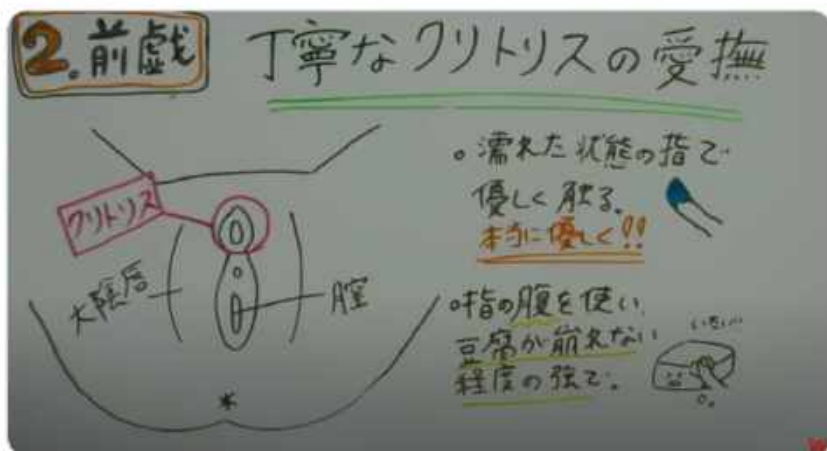 2.前戯
丁寧なクリトリスの愛撫
クリトリス
大陰唇
膣
。濡れた状態の指で
優しく触る。
本当に優しく!!
。指の腹を使い、
豆腐が崩れない
程度の強で。